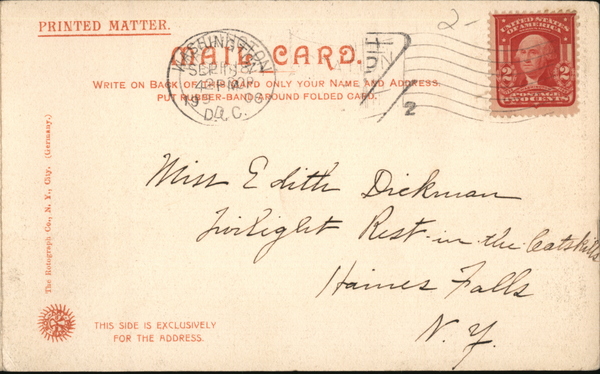 PRINTED MATTER.
2-
MAIL CARD.
WASHINGTON
D. C.
WRITE ON BACK OF THIS CARD ONLY YOUR NAME AND ADDRESS.
PUT RUBBER-BAND AROUND FOLDED CARD.
2
UNITED STATES OF AMERICA
2 2
POSTAGE
TWO CENTS
Miss Edith Dickman
Twilight Rest-in the Catskills
Haines Falls
N. Y.
The Rotograph Co., N. Y., City. (Germany.)
THIS SIDE IS EXCLUSIVELY
FOR THE ADDRESS.